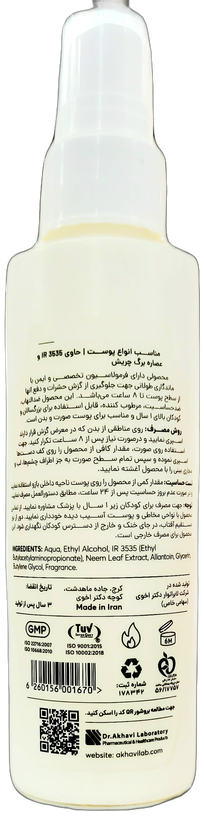 مناسب انواع پوست | حاوی IR 3535 و
عصاره برگ چریش
محصولی دارای فرمولاسیون تخصصی و ایمن با
ماندگاری طولانی جهت جلوگیری از گزش حشرات و دفع آنها
از سطح پوست تا ۸ ساعت می‌باشد. این محصول ضدالتهاب،
ضدحساسیت، مرطوب کننده، قابل استفاده برای بزرگسالان و
کودکان بالای ۱ سال و مناسب برای پوست صورت و بدن است.
روش مصرف: روی مناطقی از بدن که در معرض گزش قرار دارند
اسپری نمایید و درصورت نیاز پس از ۸ ساعت تکرار کنید. جهت
استفاده روی صورت، مقدار کافی از محصول را روی کف دست‌ها
اسپری نموده و سپس تمام سطح صورت به جز اطراف چشم‌ها، لب و
بینی را با محصول آغشته نمایید.
تست حساسیت: مقدار کمی از محصول را روی پوست ناحیه داخلی بازو استفاده نمایید
و در صورت عدم بروز حساسیت پس از ۲۴ ساعت، مطابق دستورالعمل مصرف نمایید.
توجه: جهت مصرف برای کودکان زیر ۱ سال با پزشک مشاوره نمایید. از تماس
محصول با نواحی مخاطی و پوست آسیب دیده خودداری نمایید. دور از نور
مستقیم آفتاب، در جای خنک و خارج از دسترس کودکان نگهداری شود. این
محصول برای مصرف خارجی است.
INGREDIENTS: Aqua, Ethyl Alcohol, IR 3535 (Ethyl
Butylacetylaminopropionate), Neem Leaf Extract, Allantoin, Glycerin,
Butylene Glycol, Fragrance.
تولید شده در
شرکت لابراتوار دکتر اخوی
(سهامی خاص)
کرج، جاده ماهدشت،
کوچه دکتر اخوی
Made in Iran
تاریخ انقضا:
۳ سال پس از تولید
GMP
ISO 22716:2007
ISO 10668:2010
TUV
ISO 9001:2015
ISO 10002:2018
6M
۵۶/۱۱۷۵۷
شماره ثبت:
۱۷۸۳۴۲
6 260156 001670 >
جهت مطالعه بروشور QR کد را اسکن کنید.
Dr.Akhavi Laboratory
Pharmaceutical & Healthcare Products
website: akhavilab.com